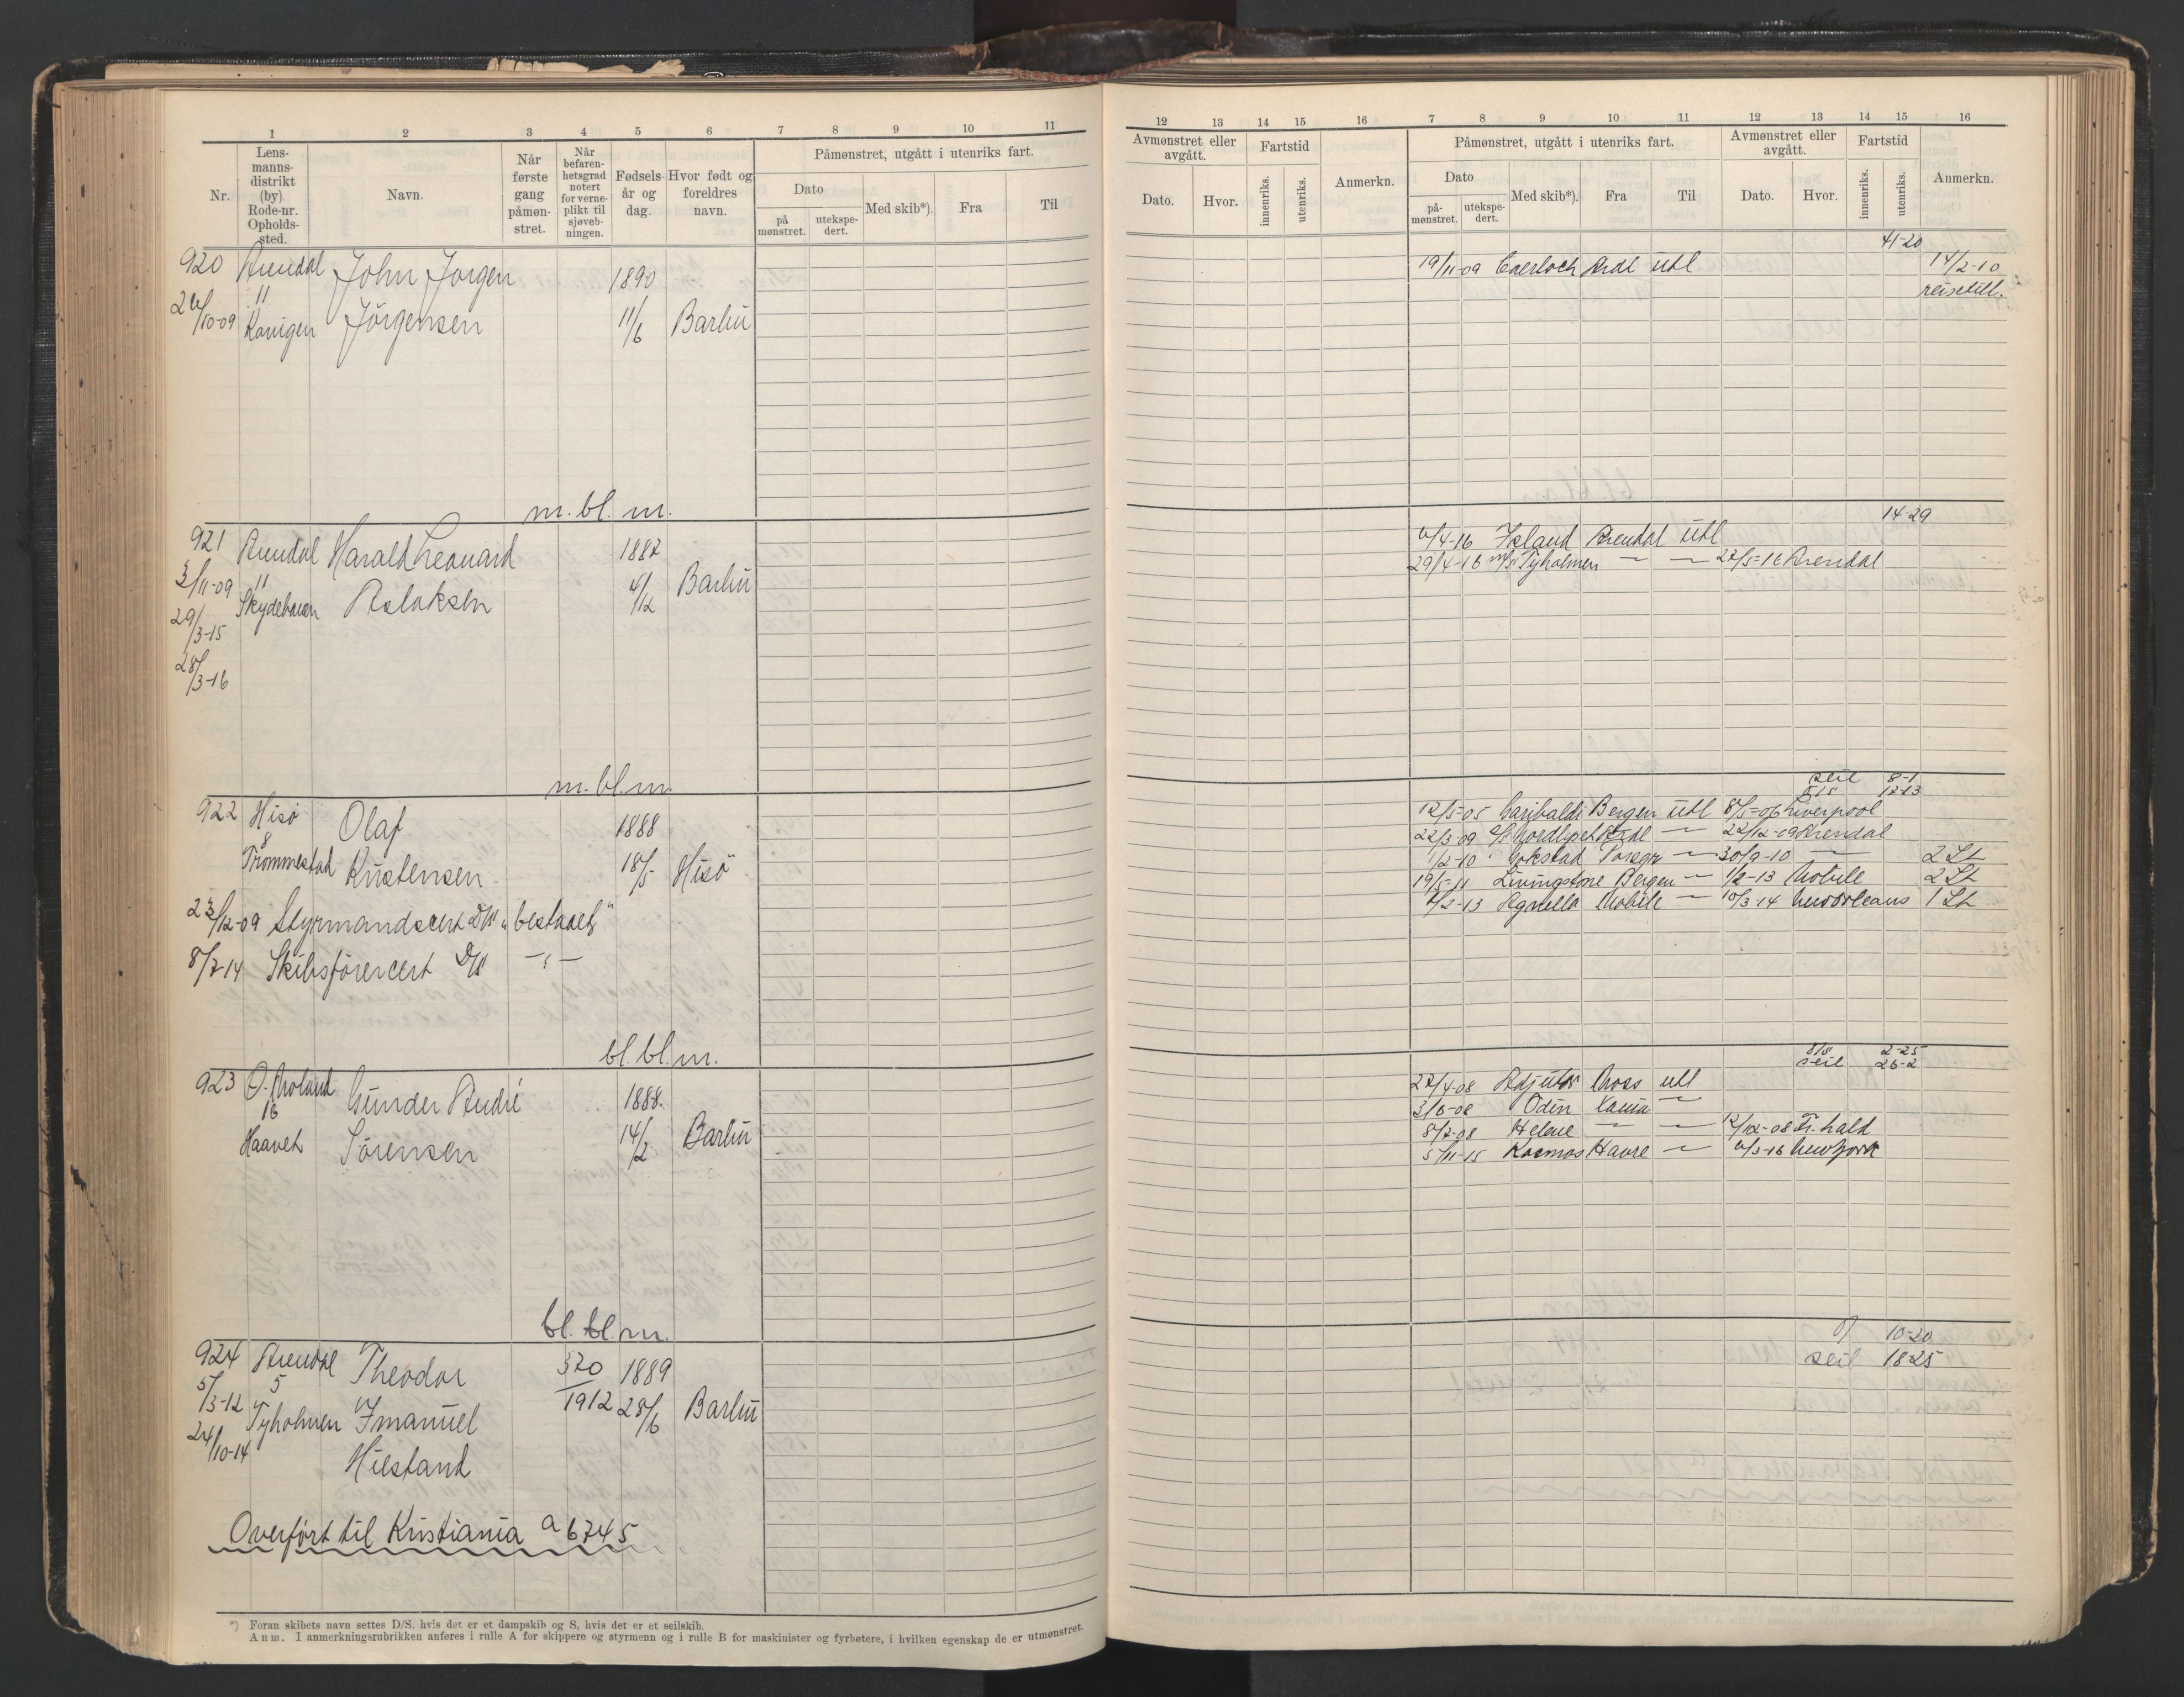 1 2 3 4 5 6 7 8 9 10 11
Nr.
Lens-
manns-
distrikt
(by)
Rode-nr.
Opholds-
sted.
Navn.
Når
første
gang
påmøn-
stret.
Når
befaren-
hetsgrad
notert
for verne-
plikt til
sjøveb-
ningen.
Fødsels-
år og
dag.
Hvor født og
foreldres
navn.
Påmønstret, utgått i utenriks fart.
Dato
på
mønstret.
utekspe-
dert.
Med skib*).
Fra
Til
920 Arendal John Jørgen 1890
26/10-09 11
Jörgensen 11/6 Barbu
m. bl. m.
921 Arendal Harald Leonard 1887
3/11-09 11 4/12 Barbu
Aslaksen
29/3-15
28/3-16
m. bl. m.
922 Hisö Olaf 1888
8
Trommestad Kristensen 18/5 Hisö
23/12-09 Styrmandscert D/S "bestaaet"
8/7-14 Skibsförercert D/S —"—
bl. bl. m.
923 Ö. Moland Gunder André 1888.
16
Haavet Sörensen 14/2 Barbu
bl. bl. m.
924 Arendal Theodor 320 1889
5/3-12 5 1912
Tyholmen Imanuel 28/6 Barbu
24/10-14
Hiestand
Overført til Kristiania a 6745
*) Foran skibets navn settes D/S, hvis det er et dampskib og S, hvis det er et seilskib.
Anm. I anmerkningsrubrikken anføres i rulle A for skippere og styrmenn og i rulle B for maskinister og fyrbøtere, i hvilken egenskap de er utmønstret.
12 13 14 15 16 7 8 9 10 11 12 13 14 15 16
Avmønstret eller
avgått.
Dato.
Hvor.
Fartstid
innenriks.
utenriks.
Anmerkn.
Påmønstret, utgått i utenriks fart.
Dato
på-
mønstret.
utekspe-
dert.
Med skib*).
Fra
Til
Avmønstret eller
avgått.
Dato.
Hvor.
Fartstid
innenriks.
utenriks.
Anmerkn.
41-20
19/11-09 Ardl utl 14/2-10
reisetill.
14-29
6/4-16 Island Arendal utl
29/4-16 m/s Tyholmen — — 27/5-16 Arendal
seil 8-1
12-13
12/5-05 Garibaldi Bergen utl 8/5-06 Liverpool
22/3-09 Ardl — 22/12-09 Arendal
1/2-10 Gokstad Porsgr — 30/9-10 — 2 St
19/5-11 Livingstone Bergen — 1/2-13 Mobile 2 St
2/2-13 Agnella Mobile — 10/3-14 Neworleans 1 St
2-25
seil 26-2
27/4-08 Adjutor Moss utl
3/6-08 Odin —
8/7-08 Helene — — 12/12-08 Fr.hald
5/11-15 Kosmos Havre — 6/3-16 Newyork
10-20
seil 18-25